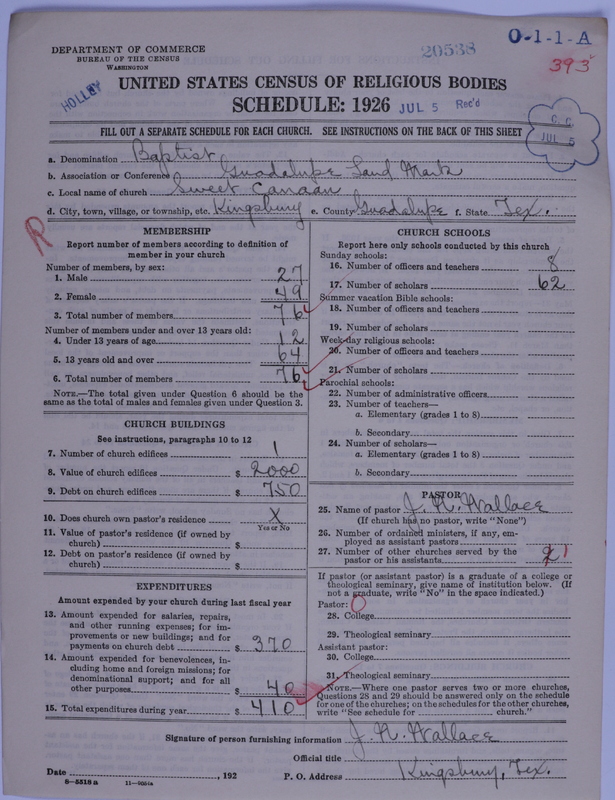 DEPARTMENT OF COMMERCE
BUREAU OF THE CENSUS
WASHINGTON
20538
O-1-1-A
393
HOLLEY
UNITED STATES CENSUS OF RELIGIOUS BODIES
SCHEDULE: 1926
JUL 5 Rec'd
C. C.
JUL 5
FILL OUT A SEPARATE SCHEDULE FOR EACH CHURCH. SEE INSTRUCTIONS ON THE BACK OF THIS SHEET
a. Denomination Baptist
b. Association or Conference Guadalupe Land Mark
c. Local name of church Sweet Canaan
d. City, town, village, or township, etc. Kingsbury e. County Guadalupe f. State Tex.
R
MEMBERSHIP
Report number of members according to definition of
member in your church
Number of members, by sex:
1. Male 27
2. Female 49
3. Total number of members 76
Number of members under and over 13 years old:
4. Under 13 years of age 12
5. 13 years old and over 64
6. Total number of members 76
NOTE.—The total given under Question 6 should be the
same as the total of males and females given under Question 3.
CHURCH BUILDINGS
See instructions, paragraphs 10 to 12
7. Number of church edifices 1
8. Value of church edifices $ 2000
9. Debt on church edifices $ 750
10. Does church own pastor's residence X
Yes or No
11. Value of pastor's residence (if owned by
church) $
12. Debt on pastor's residence (if owned by
church) $
EXPENDITURES
Amount expended by your church during last fiscal year
13. Amount expended for salaries, repairs,
and other running expenses; for im-
provements or new buildings; and for
payments on church debt $ 370
14. Amount expended for benevolences, in-
cluding home and foreign missions; for
denominational support; and for all
other purposes $ 40
15. Total expenditures during year $ 410
CHURCH SCHOOLS
Report here only schools conducted by this church
Sunday schools:
16. Number of officers and teachers 8
17. Number of scholars 62
Summer vacation Bible schools:
18. Number of officers and teachers
19. Number of scholars
Week-day religious schools:
20. Number of officers and teachers
21. Number of scholars
Parochial schools:
22. Number of administrative officers
23. Number of teachers—
a. Elementary (grades 1 to 8)
b. Secondary
24. Number of scholars—
a. Elementary (grades 1 to 8)
b. Secondary
PASTOR
25. Name of pastor J. N. Wallace
(If church has no pastor, write "None")
26. Number of ordained ministers, if any, em-
ployed as assistant pastors
27. Number of other churches served by the
pastor or his assistants 2 1
If pastor (or assistant pastor) is a graduate of a college or
theological seminary, give name of institution below. (If
not a graduate, write "No" in the space indicated.)
Pastor: O
28. College
29. Theological seminary
Assistant pastor:
30. College
31. Theological seminary
NOTE.—Where one pastor serves two or more churches,
Questions 28 and 29 should be answered only on the schedule
for one of the churches; on the schedules for the other churches,
write "See schedule for church."
Signature of person furnishing information J. N. Wallace
Official title
Date , 192 P. O. Address Kingsbury, Tex.
8—5518 a 11—9054a